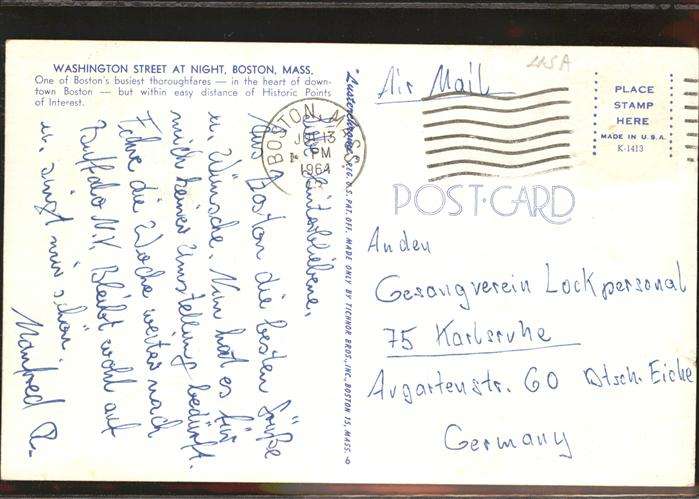 WASHINGTON STREET AT NIGHT, BOSTON, MASS.
One of Boston's busiest thoroughfares — in the heart of down-
town Boston — but within easy distance of Historic Points
of Interest.
Hinterbliebene,
Aus Boston die besten Grüße
u. Wünsche. Nun hat es für
mich keiner Umstellung bedurft.
Fahre die Woche weiter nach
Buffalo N.Y. Bleibt wohl auf
u. singt mir schön.
Manfred
"Lusterchrome" REG. U.S. PAT. OFF. MADE ONLY BY TICHNOR BROS., INC., BOSTON 15, MASS.
BOSTON, MASS.
13
PM
1964
USA
Air Mail
PLACE
STAMP
HERE
MADE IN U.S.A.
K-1413
POST-CARD
An den
Gesangverein Lockpersonal
75 Karlsruhe
Augartenstr. 60 Dtsch. Eiche
Germany